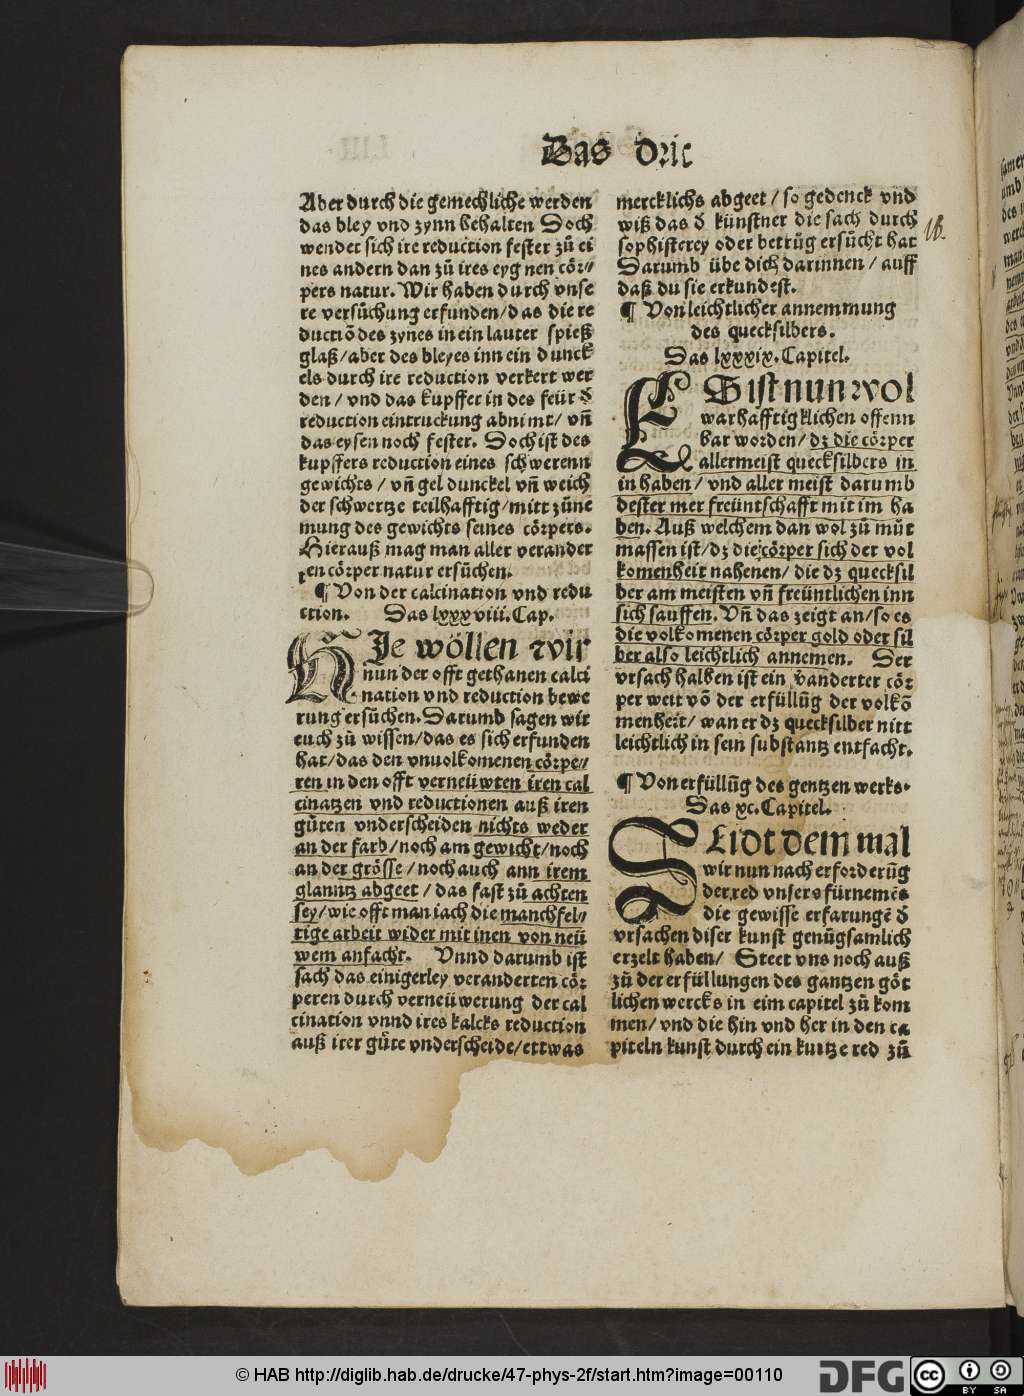 Das drit
Aber durch die gemechliche werden
das bley vnd zynn behalten Doch
wendet sich ire reduction fester zů ei
nes andern dan zů ires eygnen cör⸗
pers natur. Wir haben durch vnse
re versůchung erfunden/das die re
ductiō des zynes in ein lauter spieß
glaß/aber des bleyes inn ein dunck
els durch ire reduction verkert wer
den/ vnd das kupffer in des feür d̕
reduction eintruckung abnimt/ vñ
das eysen noch fester. Doch ist des
kupffers reduction eines schwerenn
gewichts/ vñ gel dunckel vñ weich
der schwertze teilhafftig/mitt zůne
mung des gewichts seines cörpers.
Hierauß mag man aller verander
ten cörper natur ersůchen.
¶ Von der calcination vnd redu
ction. Das lxxxviii. Cap.
HJe wöllen wir
nun der offt gethanen calci
nation vnd reduction bewe
rung ersůchen. Darumb sagen wir
euch zů wissen/das es sich erfunden
hat/das den vnuolkomenen cörpe⸗
ren in den offt verneüwten iren cal
cinatzen vnd reductionen auß iren
gůten vnderscheiden nichts weder
an der farb/noch am gewicht/noch
an der grösse/noch auch ann irem
glanntz abgeet/ das fast zů achten
sey/wie offt man iach die manchfel⸗
tige arbeit wider mit inen von neü
wem anfacht. Vnnd darumb ist
sach das einigerley veranderten cör
peren durch verneüwerung der cal
cination vnnd ires kalcks reduction
auß irer gůte vnderscheide/ettwas
mercklichs abgeet/ so gedenck vnd
wiß das d̕ künstner die sach durch
sophisterey oder betrůg ersůcht hat
Darumb übe dich darinnen/ auff
daß du sie erkundest.
¶ Von leichtlicher annemmung
des quecksilbers.
Das lxxxix. Capitel.
ES ist nun wol
warhafftigklichen offenn
bar worden/ dz die cörper
allermeist quecksilbers in
in haben/ vnd aller meist darumb
dester mer freüntschafft mit im ha
ben. Auß welchem dan wol zů můt
massen ist/dz die cörper sich der vol
komenheit nahenen/ die dz quecksil
ber am meisten vñ freüntlichen inn
sich sauffen. Vñ das zeigt an/so es
die volkomenen cörper gold oder sil
ber also leichtlich annemen. Der
vrsach halben ist ein v̕anderter cör
per weit vō der erfüllůg der volkō
menheit/ wan er dz quecksilber nitt
leichtlich in sein substantz entfacht.
¶ Von erfüllůg des gentzen werks.
Das xc. Capitel.
SEidt dem mal
wir nun nach erforderůg
der red vnsers fürnemēs
die gewisse erfarungē d̕
vrsachen diser kunst genůgsamlich
erzelt haben/ Steet vns noch auß
zů der erfüllungen des gantzen göt
lichen wercks in eim capitel zů kom
men/ vnd die hin vnd her in den ca
piteln kunst durch ein kurtze red zů
© HAB http://diglib.hab.de/drucke/47-phys-2f/start.htm?image=00110
DFG
cc BY SA